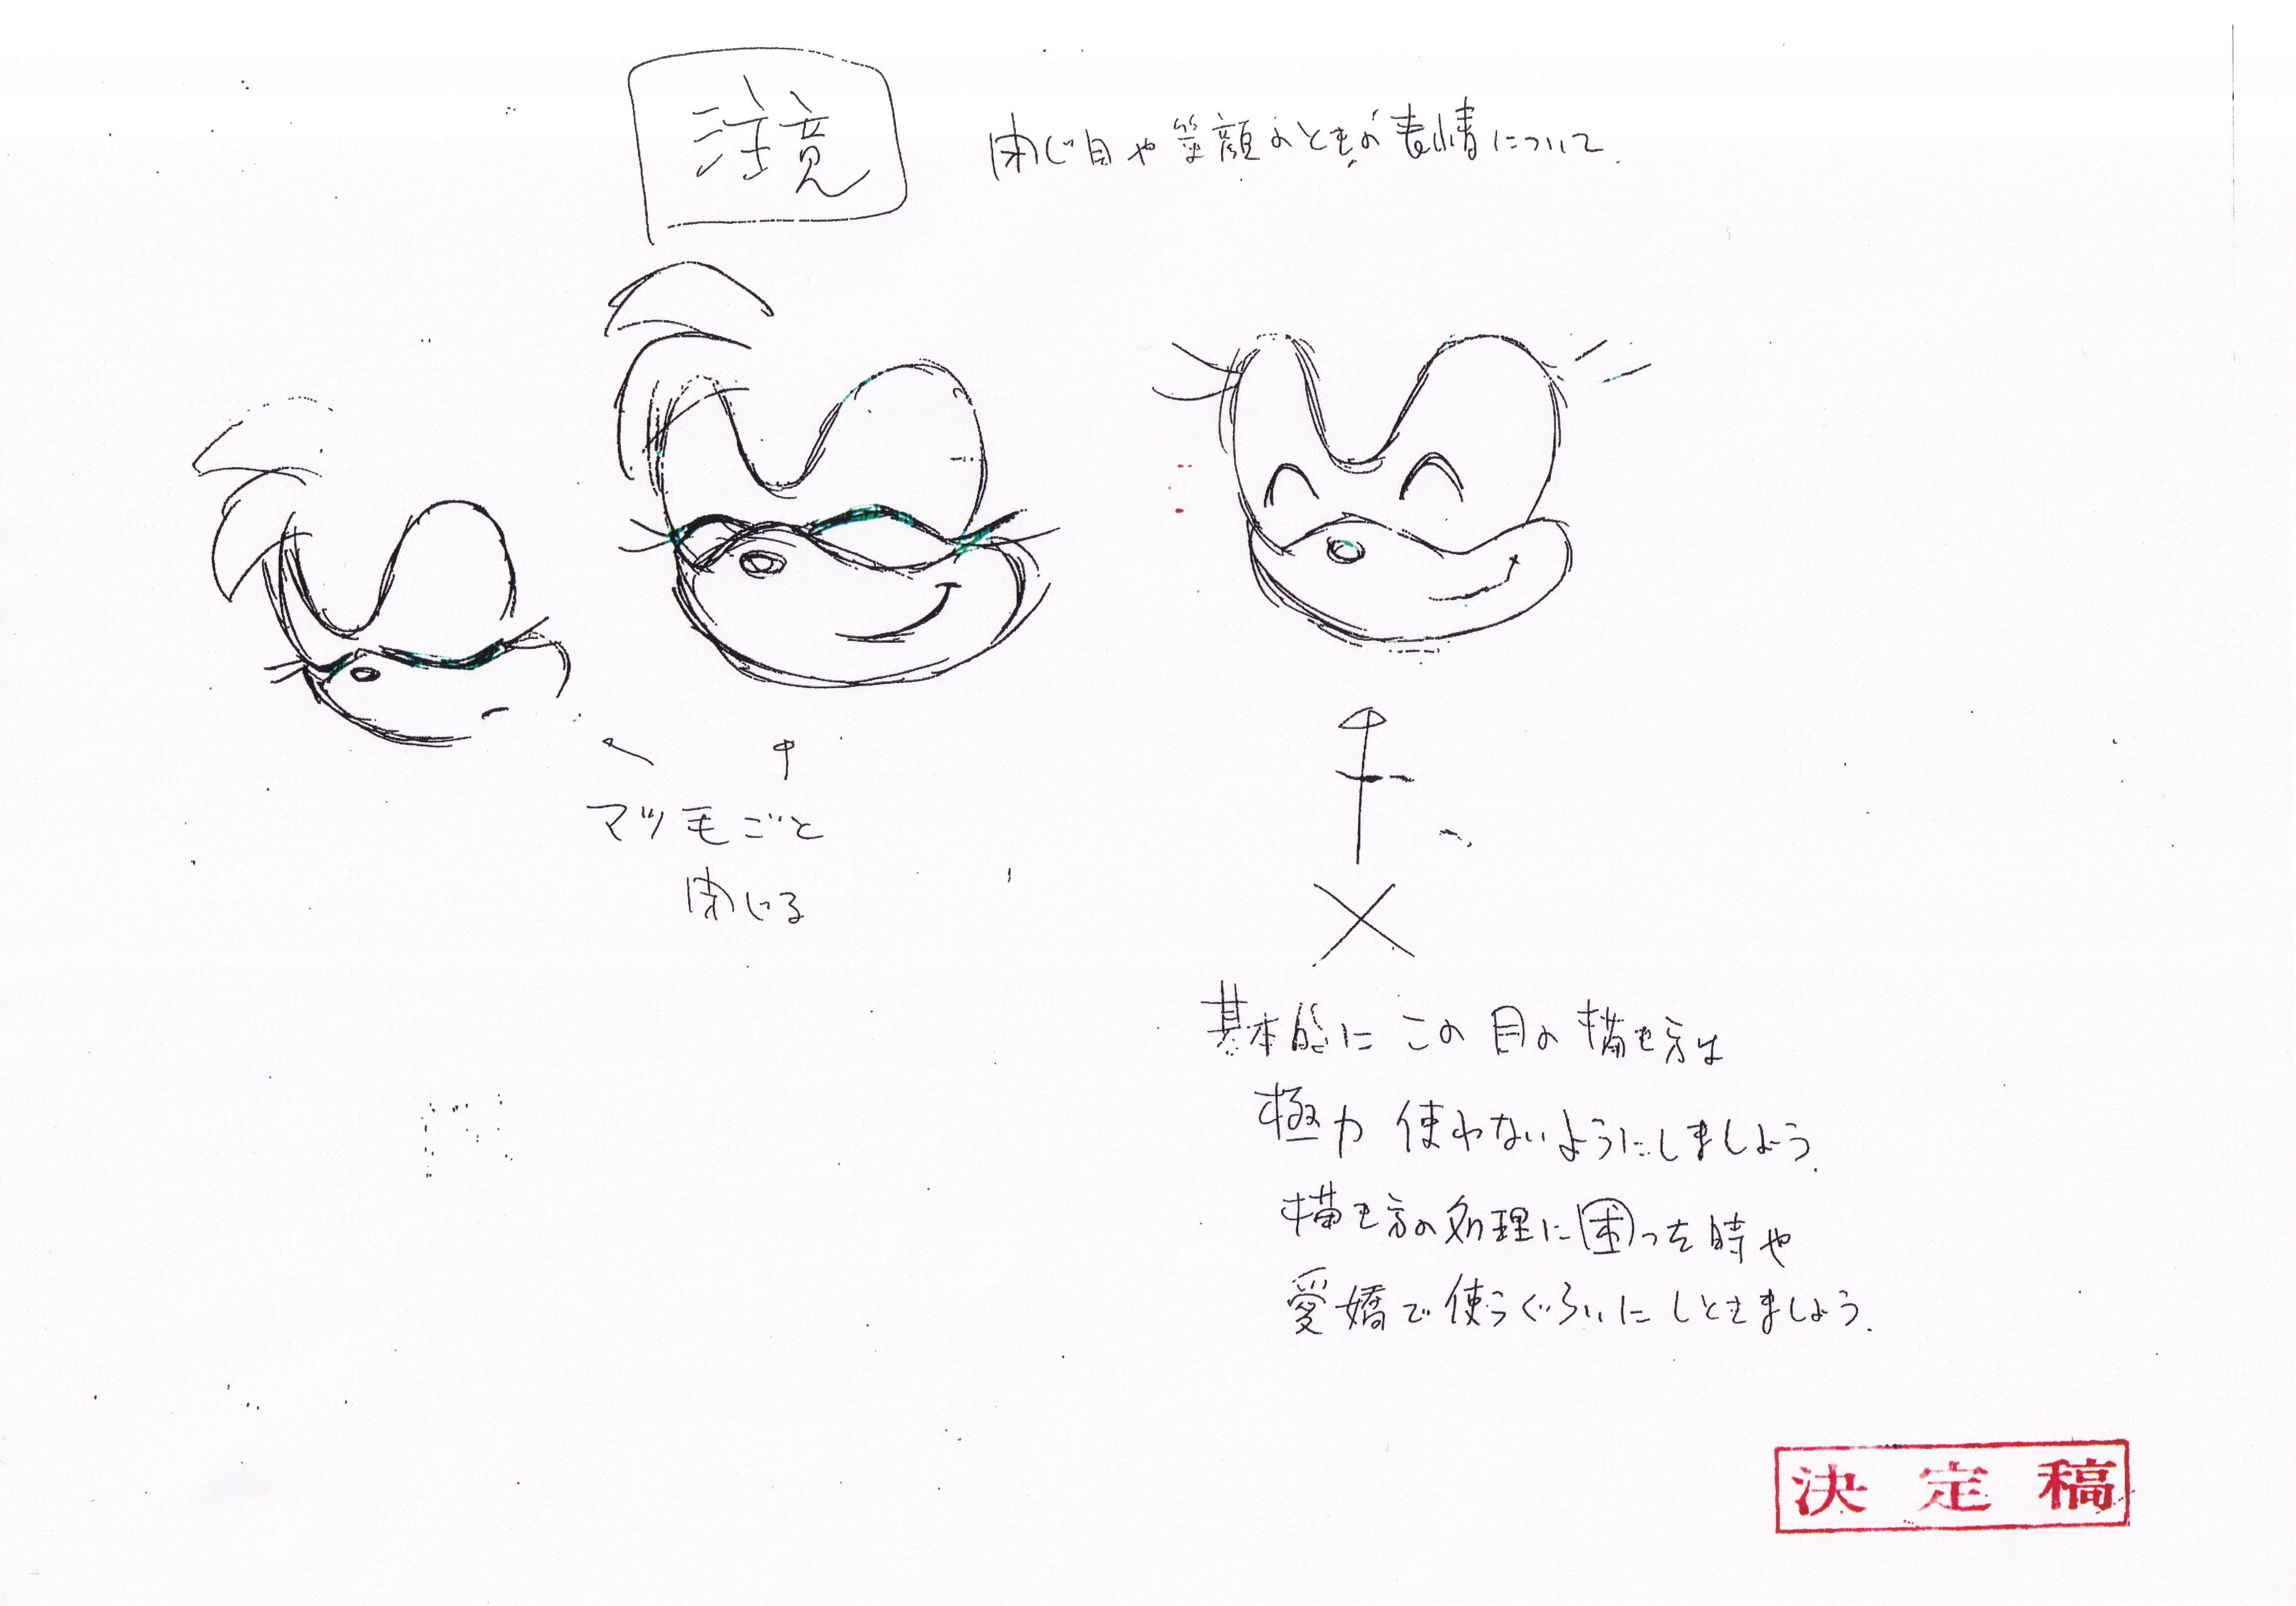 注意
閉じ目や笑顔のときの表情について.
マツ毛ごと
閉じる
基本的にこの目の描き方は
極力使わないようにしましょう.
描き方の処理に困った時や
愛嬌で使うぐらいにしときましょう.
決定稿